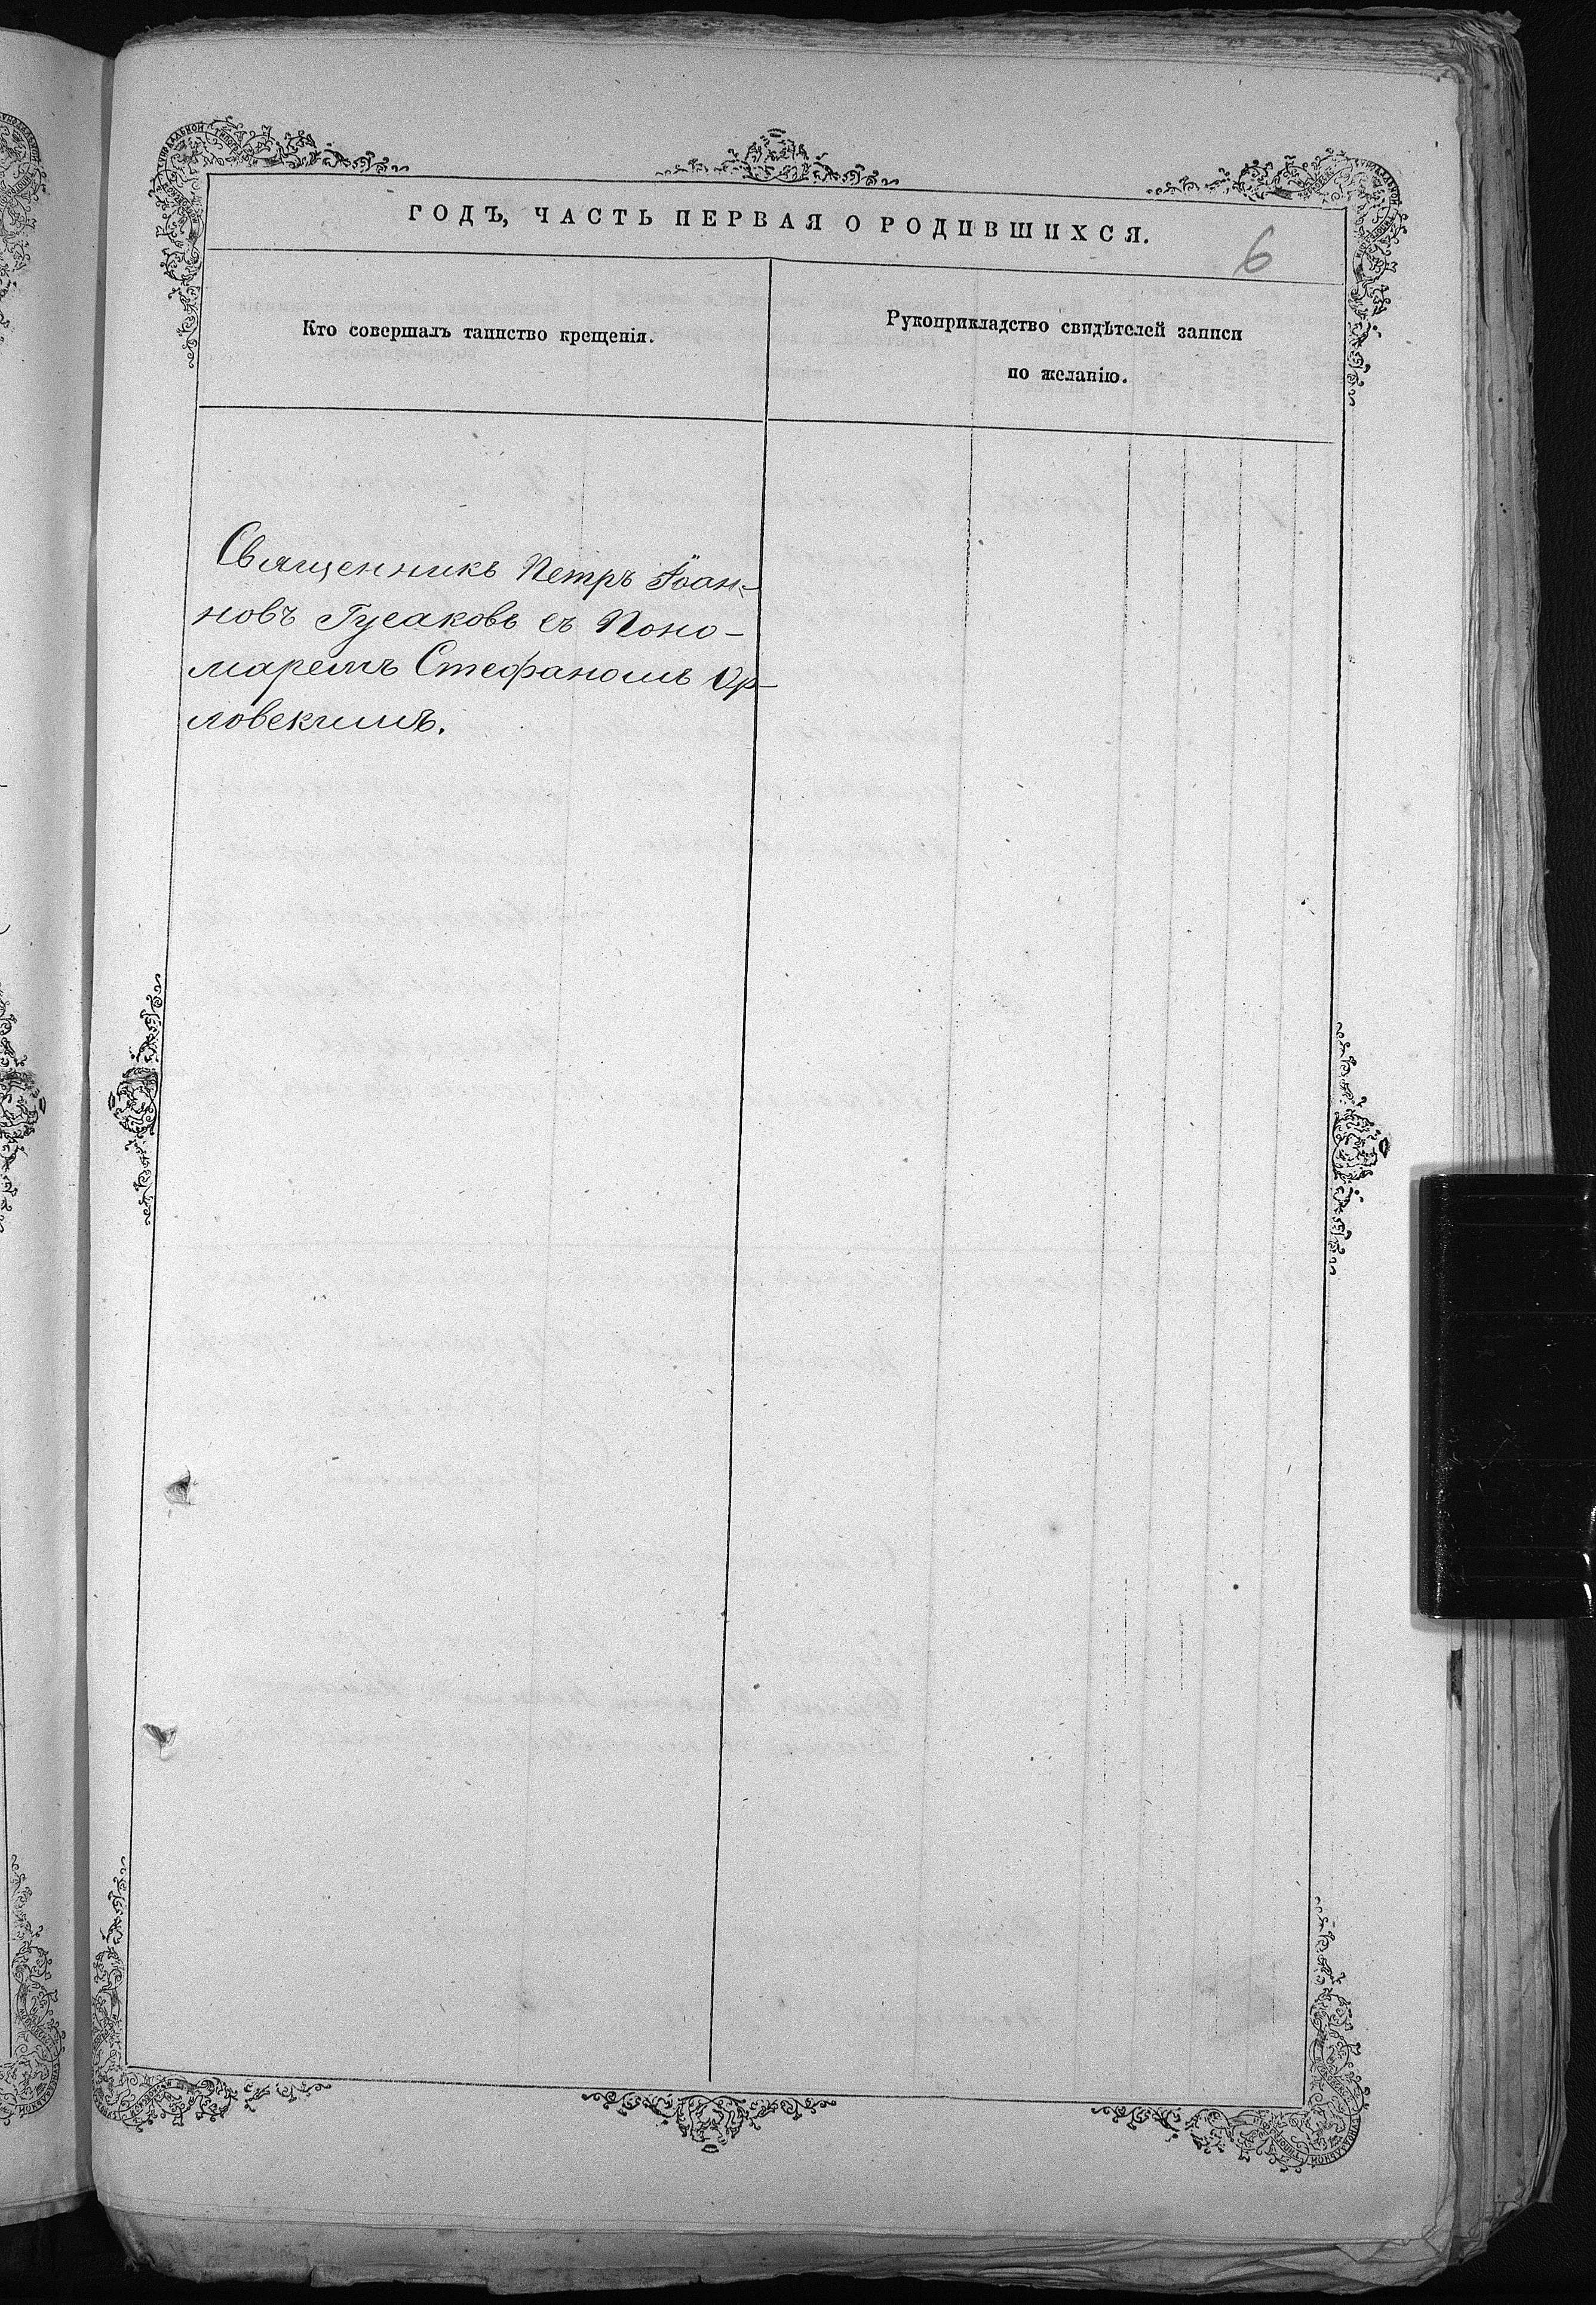 ГОДЪ, ЧАСТЬ ПЕРВАЯ О РОДИВШИХСЯ.
6
Кто совершалъ таинство крещенія.
Рукоприкладство свидѣтелей записи
по желанію.
Священникъ Петръ Іоан-
новъ Гусаковъ съ Поно-
маремъ Стефаномъ Ор-
ловскимъ.